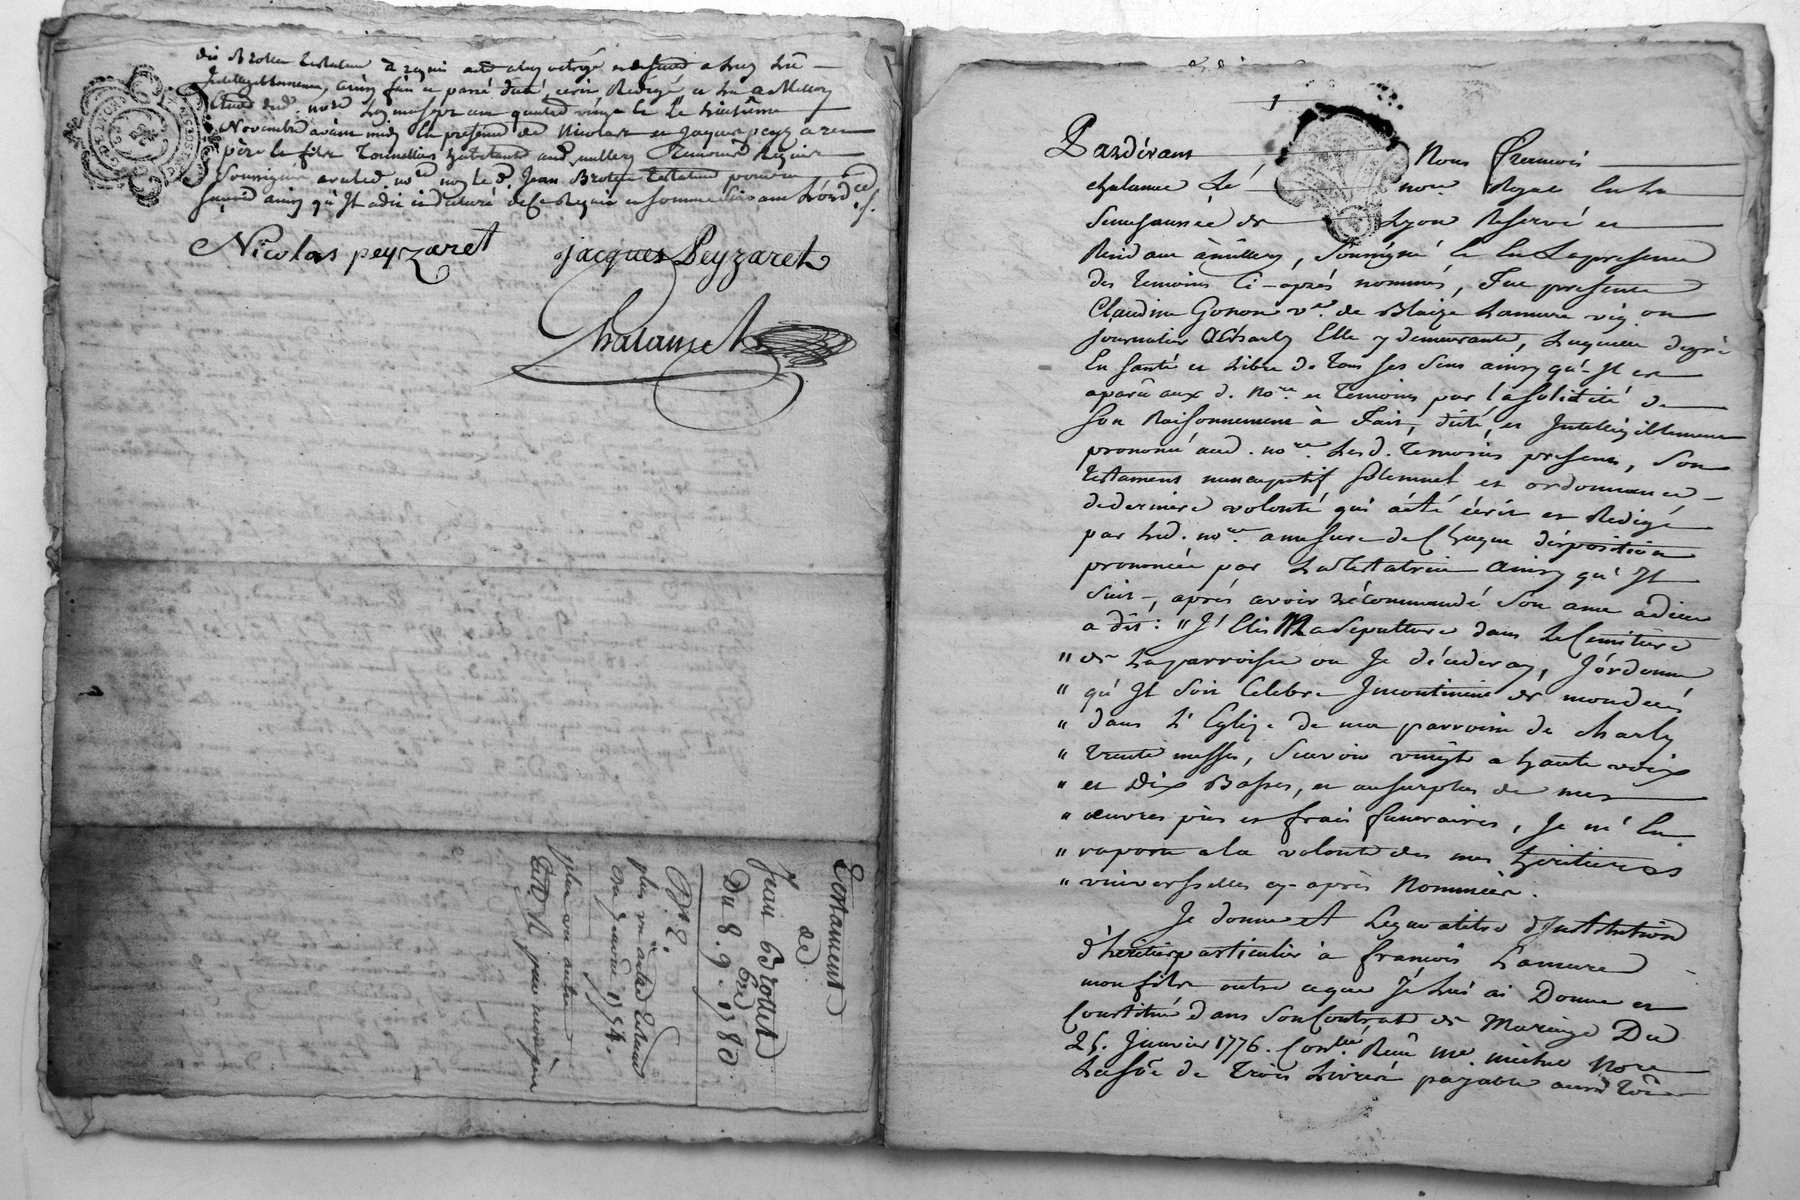 dit Brottet Testateur a requis acte
ainsi fait et passé dicté, écrit Redigé et Lu a Millery
Etude dud. nore. L'an mil sept cent quatre vingt le huitième
Novembre avant midy En presence de Nicolas et Jaques peyzaret
père et fils Tonnelliers habitants aud. millery Temoins Requis
Soussignés avec led. nore. non le d. Jean Brottet Testateur pour ne
savoir ainsy qu'Il a dit et déclaré de ce Requis et sommé suivant L'ordce.
Nicolas peyzaret
jacques Peyzaret
Chalamet
Testament
de
Jean Brottet
Du 8. 9bre. 1780.
No. 2.
plus un autre Testament
du 1754.
plus un autre
Pardevant Nous François
chalamet Le nore Royal En la
Senechaussée de Lyon Reservé et
Residant à millery, Soussigné et En La presence
des temoins Ci-après nommés, Fut presente
Claudine Gonon ve. de Blaize Lamure vig.on
journalier A Charly Elle y demeurante, Laquelle
En santé et Libre de Tous ses sens ainsy qu'Il est
aparû aux d. Nore. et Temoins par la solidité de
son Raisonnement à Fait, dicté, et Intelligiblement
prononcé aud. nore. Lesd. Temoins presents, son
testament nuncupatif solemnel et ordonnance
de derniere volonté qui a été écrit et Redigé
par Led. nore. a mesure de Chaque disposition
prononcée par La Testatrice Ainsy qu'Il
suit, après avoir récommandé son ame à dieu
a dit : " J'Elis Ma Sepulture dans Le Cimetiere
" de La parroisse ou Je décederay, J'ordonne
" qu'Il soit Celebré Incontinent de mon decès
" dans L'Eglize de ma parroisse de charly
" trente messes, scavoir vingt a haute voix
" et Dix Basses, et au surplus de mes
" œuvres pies et frais funeraires, Je m'En
" raporte a la volonté des mes heritieres
" universselles cy-après Nommées.
Je donne et Legue a titre d'Institution
d'heritier particulier à François Lamure
mon fils outre ce que Je Lui ai Donné et
Constitué dans son Contrat de Mariage Du
25. Janvier 1776. Reçu me. nore
La so͂e de trois Livres payable